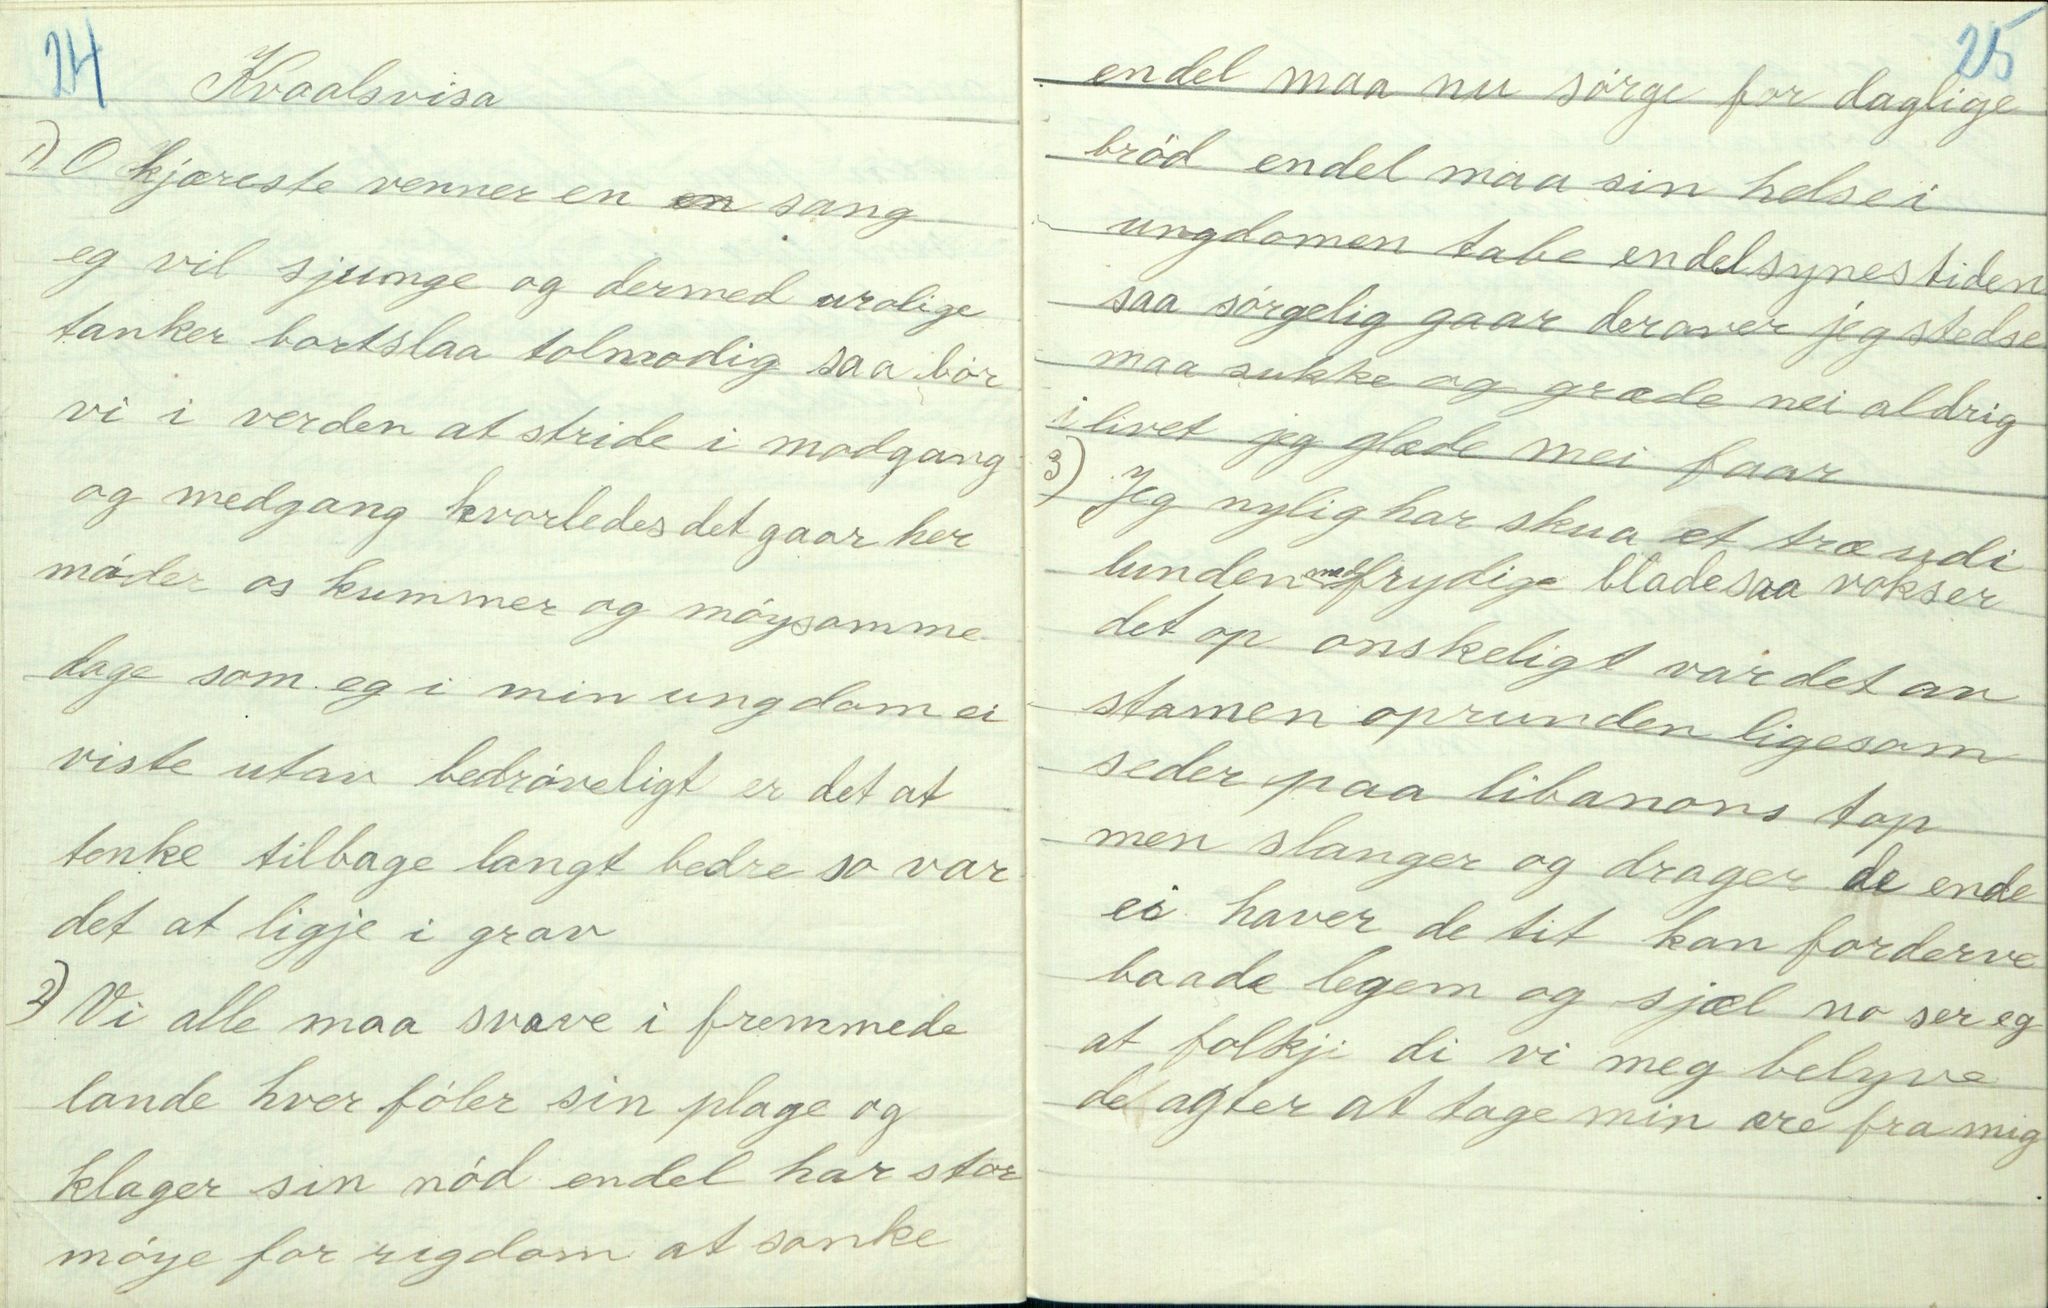 24
Kvaalsvisa
1) O kjæreste venner en en sang
eg vil sjunge og dermed urolige
tanker bortslaa tolmodig saa bør
vi i verden at stride i modgang
og medgang kvorledes det gaar her
møder os kummer og møysomme
dage som eg i min ungdom ei
viste utav bedrøveligt er det at
tenke tilbage langt bedre so var
det at ligje i grav
2) Vi alle maa svave i fremmede
lande hver føler sin plage og
klager sin nød endel har stor
møye for rigdom at sanke
25
endel maa nu sørge for daglige
brød endel maa sin helse i
ungdomen tabe endel synes tiden
saa sørgelig gaar derover jeg stedse
maa sukke og græde nei aldrig
i livet jeg glæde mei faar
3) Jeg nylig har skua et træ udi
lunden med frydige blade saa vokser
det op onskeligt var det av
stamen oprunden ligesom
seder paa libanons top
men slanger og drager de ende
ei haver de tit kan forderve
baade legem og sjæl no ser eg
at folkji di vi meg belyve
de agter at tage min ære fra mig